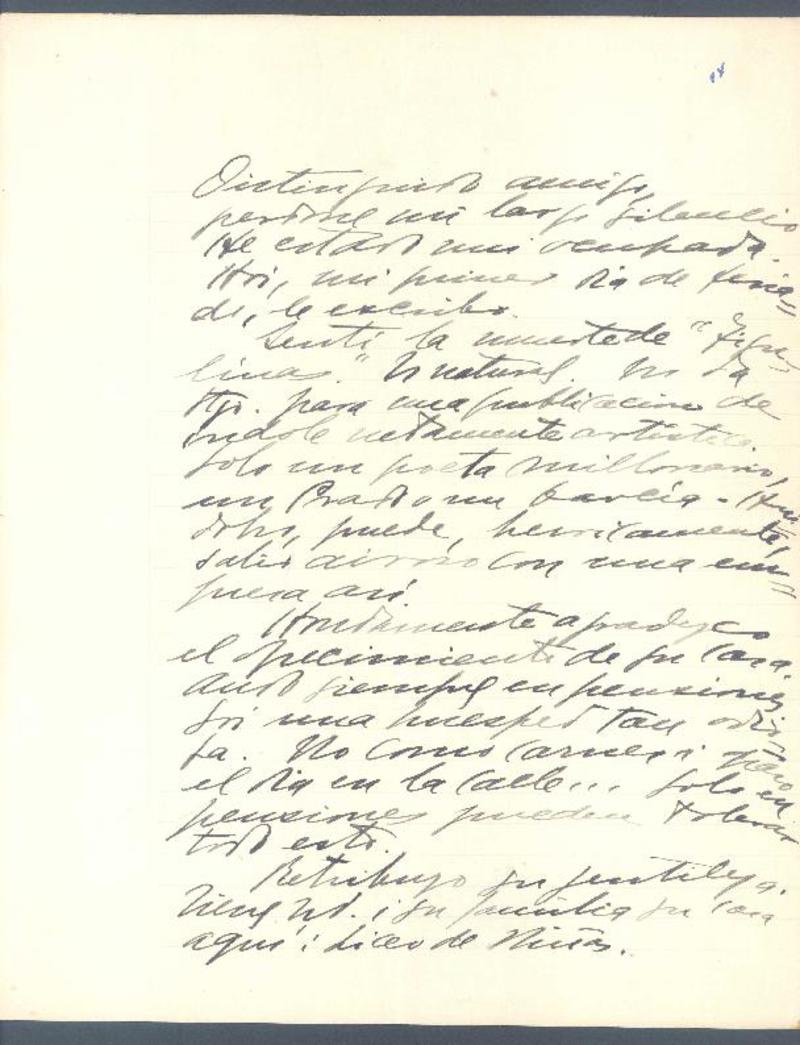 14
Distinguido amigo,
perdone mi largo silencio
He estado mui ocupada.
Hoi, mi primer dia de feria=
do, le escribo.
Sentí la muerte de "Figu-
linas." Es natural. No da
Stgo. para una publicacion de
índole netamente artística.
Solo un poeta millonario,
un Prado o un García-Hui
dobro, puede, heroicamente,
salir airoso con una em=
presa así.
Hondamente agradezco
el ofrecimiento de su casa.
Ando siempre en pensiones
Soi una huesped tan odio
sa. No como carnes i paso
el dia en la calle... Solo en
pensiones pueden tolerar
todo esto.
Retribuyo su gentileza.
Tiene Ud. i su familia su casa
aquí: Liceo de Niñas.